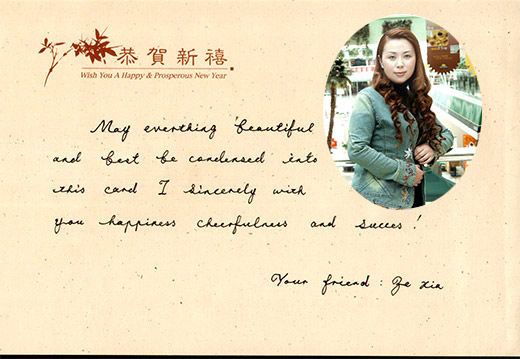 恭賀新禧
Wish You A Happy & Prosperous New Year
May everthing beautiful
and best be condensed into
this card I sincerely with
you happiness cheerfulness and succes!
Your friend: Ze xia